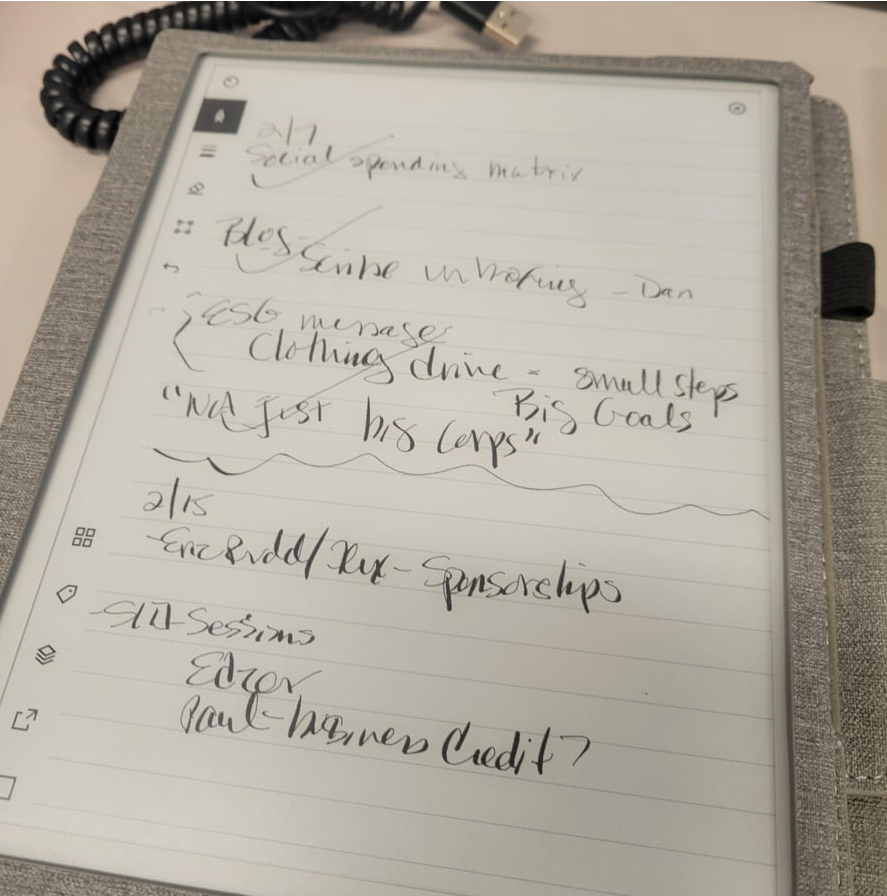 2/7
Social spending matrix
Blog - Scribe unboxing - Dan
ESG message
Clothing drive - small steps
Big Goals
"Not just big Corps"
2/15
- Sponsorships
-Sessions
Paul-business Credit?